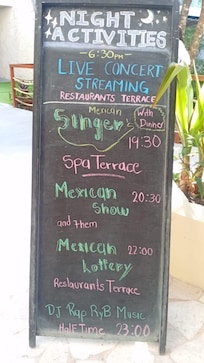 NIGHT
ACTIVITIES
- 6:30PM -
LIVE CONCERT
STREAMING
RESTAURANTS TERRACE
Mexican
Singer With
Dinner
19:30
Spa Terrace
Mexican 20:30
Show
and then
Mexican 22:00
Lottery
Restaurants Terrace
DJ Rap RyB Music
Half Time 23:00